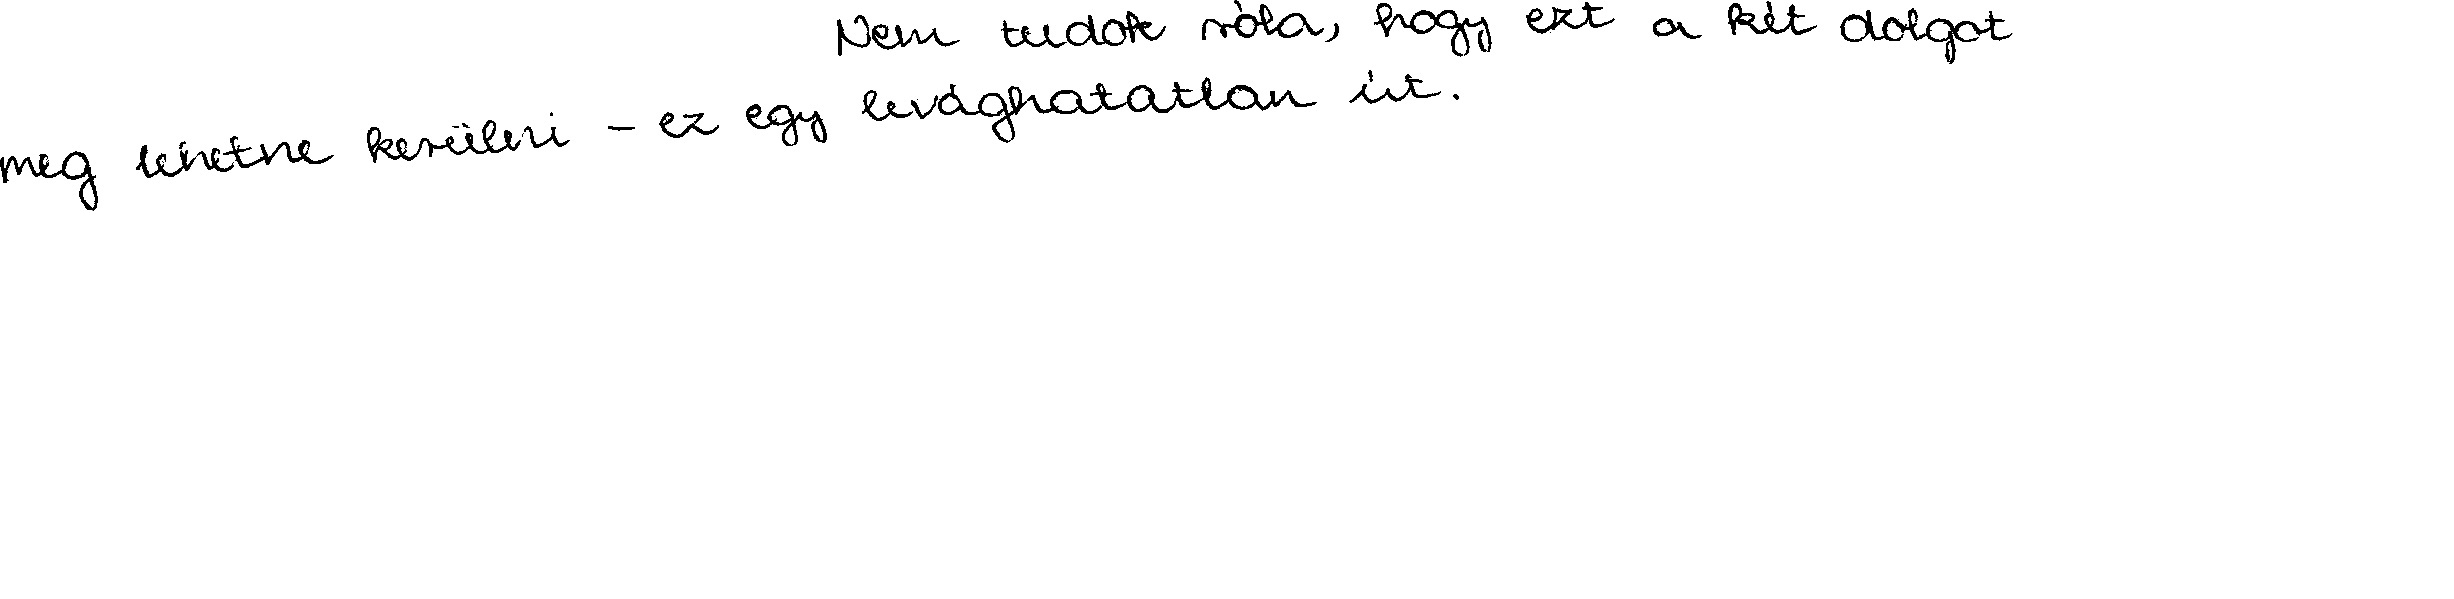 Nem tudok róla, hogy ezt a két dolgot
meg lehetne kerülni - ez egy levághatatlan út.